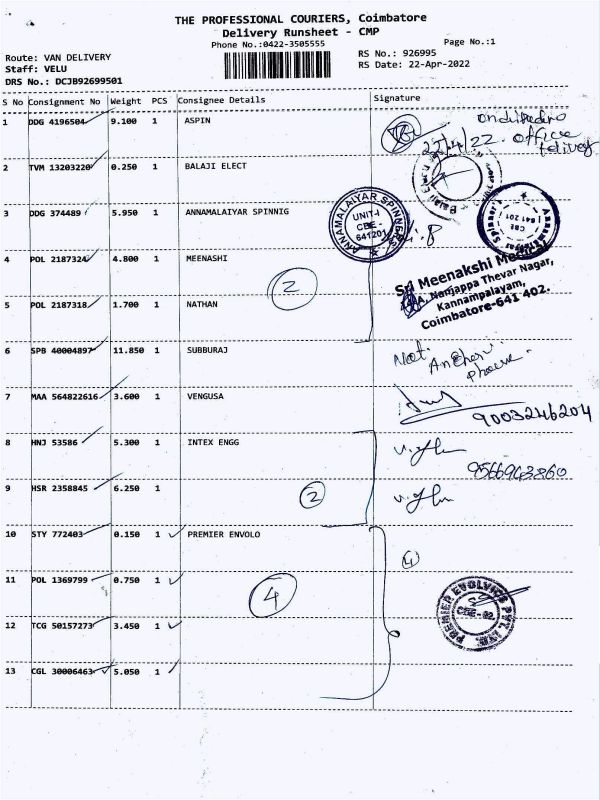 THE PROFESSIONAL COURIERS, Coimbatore
Delivery Runsheet - CMP
Phone No.:0422-3505555
Page No.:1
Route: VAN DELIVERY
Staff: VELU
DRS No.: DCJB92699501
RS No.: 926995
RS Date: 22-Apr-2022
S No Consignment No Weight PCS Consignee Details Signature
1 DDG 4196504 9.100 1 ASPIN
22/4/22. office
2 TVM 13203220 0.250 1 BALAJI ELECT
3 DDG 374489 5.950 1 ANNAMALAIYAR SPINNIG
ANNAMALAIYAR SPINNERS
UNIT-I
CBE -
641201
4 POL 2187324 4.800 1 MEENASHI
2
Sri Meenakshi Medical
Nemjappa Thevar Nagar,
Kannampalayam,
Coimbatore-641 402.
5 POL 2187318 1.700 1 NATHAN
6 SPB 40004897 11.850 1 SUBBURAJ
Not.
phone.
7 MAA 564822616 3.600 1 VENGUSA
9003246204
8 HNJ 53586 5.300 1 INTEX ENGG
9566943860
9 HSR 2358845 6.250 1
2
10 STY 772403 0.150 1 PREMIER ENVOLO
4
11 POL 1369799 0.750 1
4
PREMIER EVOLVICS PVT. LTD.
CBE-62.
12 TCG 50157273 3.450 1
13 CGL 30006463 5.050 1